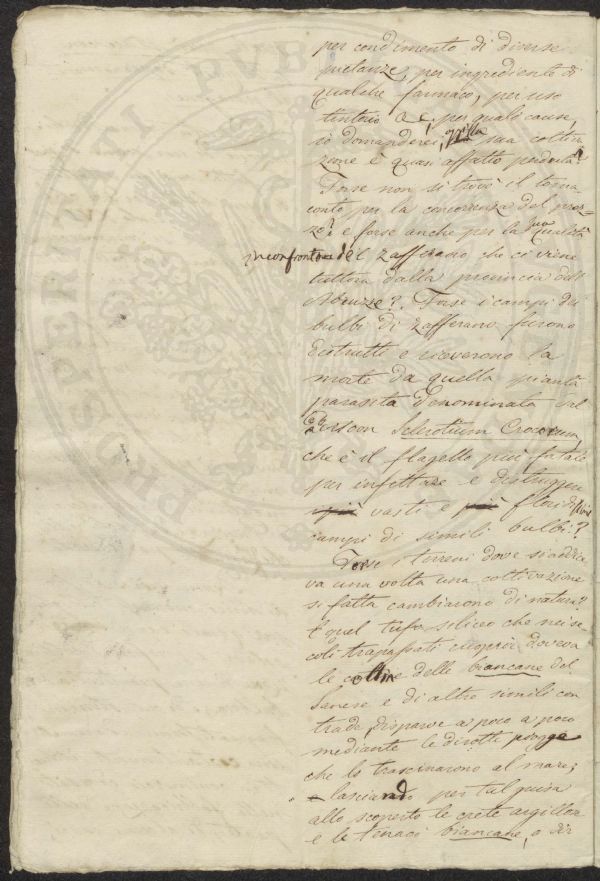 per condimento di diverse
pietanze, per ingrediente di
qualche farmaco, per uso
tintorio &c, per quale causa,
io domanderei, sua coltiva
zione è quasi affatto perduta?
Forse non si trovò il torna
conto per la concorrenza del prez-
zo? e forse anche per la qualità
in confronto del zafferano che ci viene
tuttora dalla provincia dell'
Abruzzo? Forse i campi dei
bulbi di zafferano furono
distrutti e riceverono la
morte da quella pianta
parasita denominata dal
Persoon Sclerotium Crocorum,
che è il flagello più fatale
per infettare e distruggere
vasti e floridissimi
campi di simili bulbi?
Forse i terreni dove si adoca
va una volta una coltivazione
sì fatta cambiarono di natura?
E quel tufo siliceo che nei se
coli trapassati cuoprir doveva
le colline delle biancane del
Sanese e di altre simili con
trade, disparve a poco a poco
mediante le dirotte piogge
che lo trascinarono al mare;
lasciando per tal guisa
allo scoperto le crete argillose
e le tenaci biancane, o dir